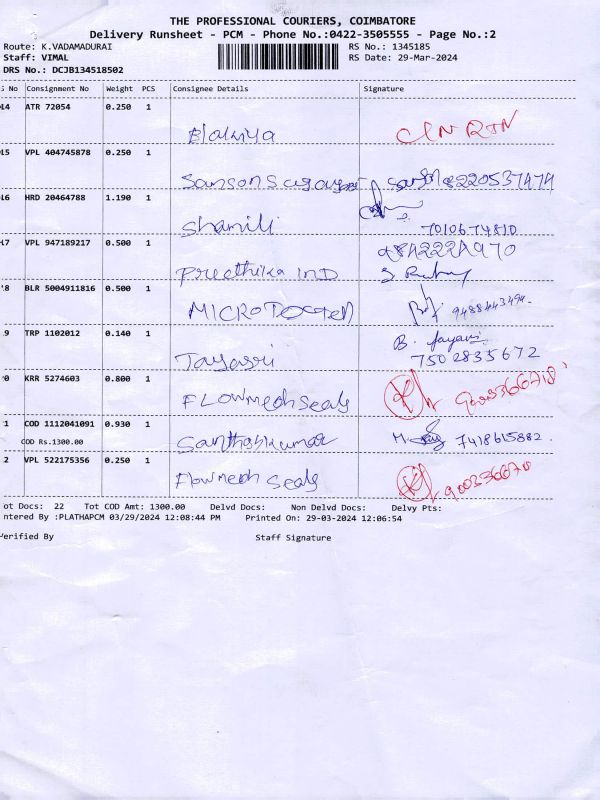 THE PROFESSIONAL COURIERS, COIMBATORE
Delivery Runsheet - PCM - Phone No.:0422-3505555 - Page No.:2
Route: K.VADAMADURAI RS No.: 1345185
Staff: VIMAL RS Date: 29-Mar-2024
DRS No.: DCJB134518502
S No Consignment No Weight PCS Consignee Details Signature
14 ATR 72054 0.250 1
15 VPL 404745878 0.250 1
8220537474
16 HRD 20464788 1.190 1
Shamili 7010674810
17 VPL 947189217 0.500 1
Preethika IND
18 BLR 5004911816 0.500 1
9488443494.
19 TRP 1102012 0.140 1
B. Jayasri
Jayasri 7502835672
20 KRR 5274603 0.800 1
Flowmech Seals
1 COD 1112041091 0.930 1
COD Rs.1300.00
Santhoshkumar 7418615882.
2 VPL 522175356 0.250 1
Flowmech Seals
ot Docs: 22 Tot COD Amt: 1300.00 Delvd Docs: Non Delvd Docs: Delvy Pts:
ntered By :PLATHAPCM 03/29/2024 12:08:44 PM Printed On: 29-03-2024 12:06:54
Verified By Staff Signature